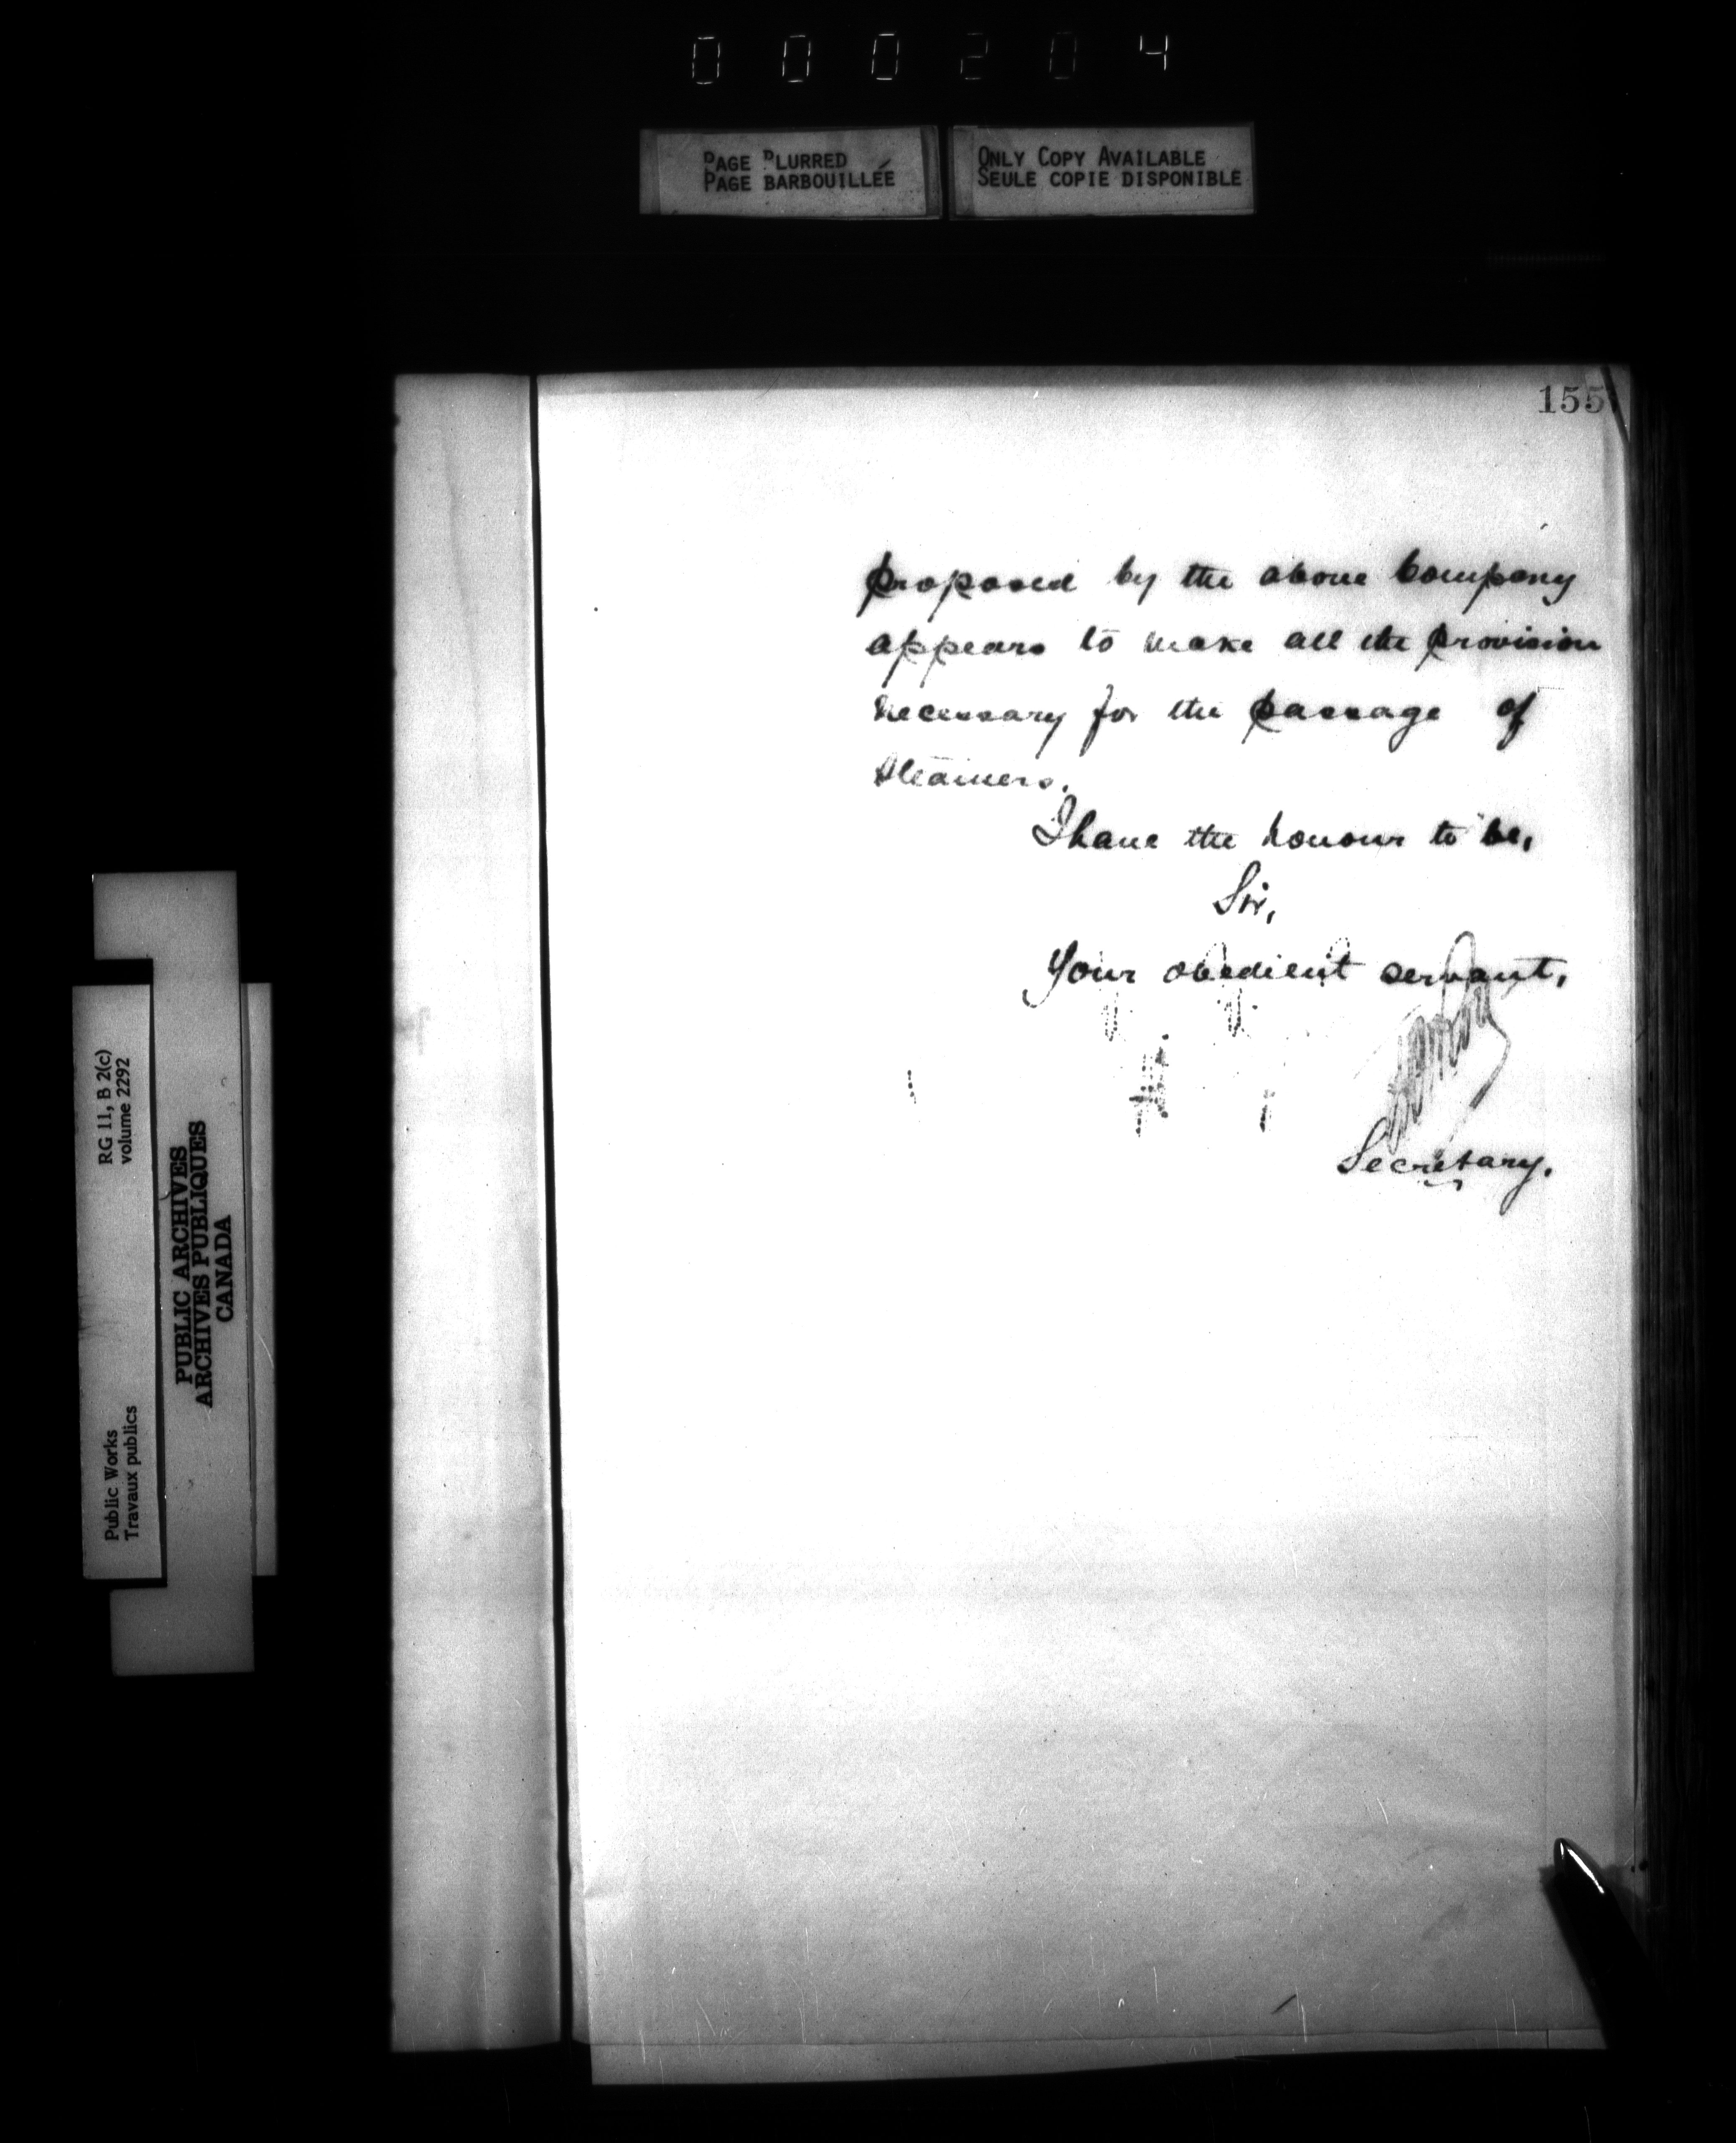 000204
PAGE BLURRED
PAGE BARBOUILLÉE
ONLY COPY AVAILABLE
SEULE COPIE DISPONIBLE
155
proposed by the above Company
appears to make all the provision
necessary for the passage of
steamers.
I have the honour to be,
Sir,
Your obedient servant,
Secretary.
RG 11, B 2(c)
volume 2292
Public Works
Travaux publics
PUBLIC ARCHIVES
ARCHIVES PUBLIQUES
CANADA